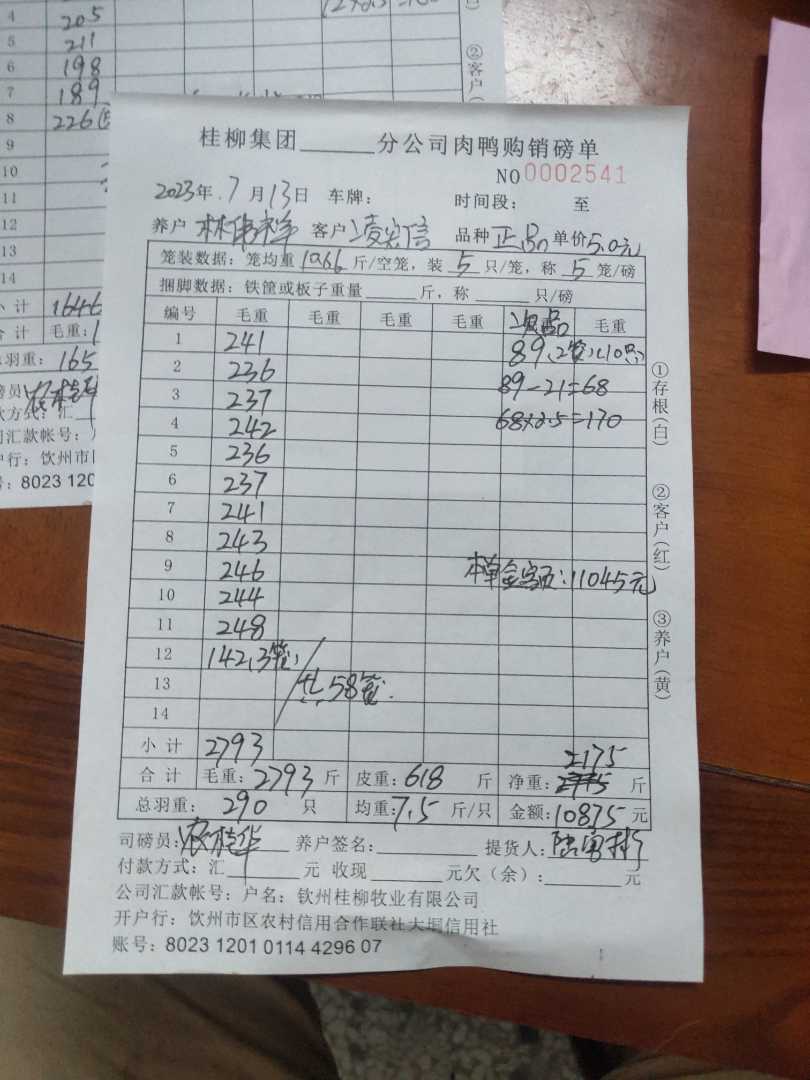 4 205
5 211
6 198
7 189
8 226
9
10
11
12
13
14
小计 1646
合计 毛重:1
总羽重: 165
②客户(
桂柳集团______分公司肉鸭购销磅单
NO 0002541
2023年 7月13日 车牌: 时间段: 至
养户 客户 凌宏信 品种 正品 单价 5.0元
笼装数据:笼均重 10.66 斤/空笼,装 5 只/笼,称 5 笼/磅
捆脚数据:铁筐或板子重量______斤,称______只/磅
编号 毛重 毛重 毛重 毛重 次品 毛重
1 241 89(2笼)(10只)
2 236 89-21=68
3 237 68×2.5=170
4 242
5 236
6 237
7 241
8 243
9 246 本单金额:11045元
10 244
11 248
12 142(3笼)
13 共58笼.
14
小计 2793 2175
合计 毛重:2793斤 皮重:618 斤 净重: 斤
总羽重: 290 只 均重:7.5斤/只 金额:10875元
司磅员: 养户签名: 提货人:
付款方式:汇______元 收现______元欠(余):______元
公司汇款帐号:户名:钦州桂柳牧业有限公司
开户行:钦州市区农村信用合作联社大垌信用社
账号:8023 1201 0114 4296 07
①存根(白)
②客户(红)
③养户(黄)
款方式:汇
司汇款帐号:
户行:钦州市
:8023 120